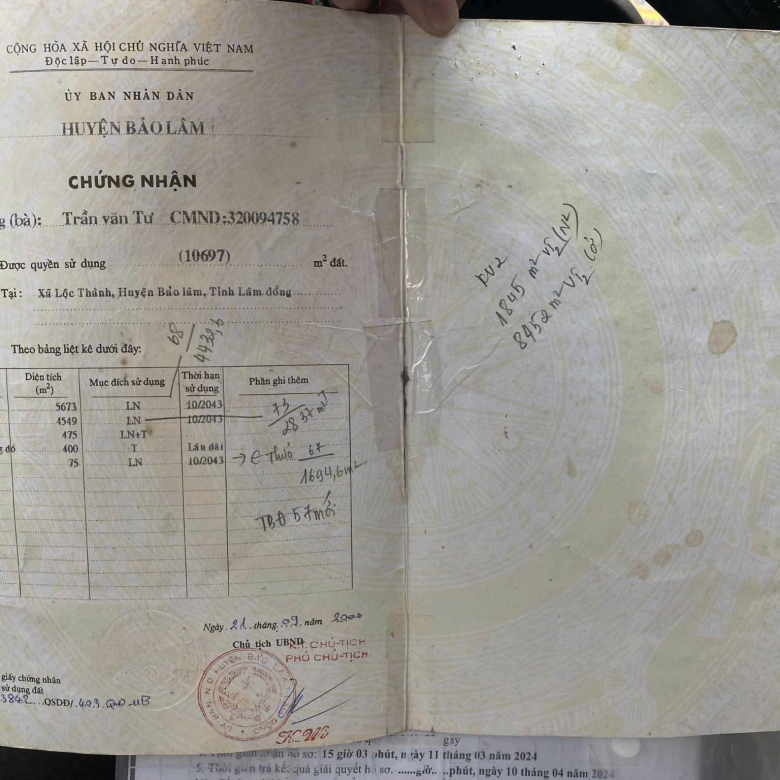 CỘNG HÒA XÃ HỘI CHỦ NGHĨA VIỆT NAM
Độc lập—Tự do—Hạnh phúc
ỦY BAN NHÂN DÂN
HUYỆN BẢO LÂM
CHỨNG NHẬN
g (bà): Trần văn Tư CMND:320094758
Được quyền sử dụng (10697) m² đất.
Tại: Xã Lộc Thành, Huyện Bảo lâm, Tỉnh Lâm đồng
Theo bảng liệt kê dưới đây:
68
4432,6
Diện tích (m²) Mục đích sử dụng Thời hạn sử dụng Phần ghi thêm
5673 LN 10/2043
4549 LN 10/2043 73
2837 m²
475 LN+T
g đó 400 T Lâu dài
75 LN 10/2043 → Thửa 67
1694,6m²
TBĐ 57 mới
KV2
1845 m² VT2 (N²)
8452 m² VT2 (Ở)
Ngày 21 tháng 09 năm 2000
Chủ tịch UBND
K.T. CHỦ-TỊCH
PHÓ CHỦ-TỊCH
giấy chứng nhận
sử dụng đất
QSDĐ/
15 giờ 03 phút, ngày 11 tháng 03 năm 2024
5. Thời gian trả kết quả giải quyết hồ sơ: ......giờ.. ..phút, ngày 10 tháng 04 năm 2024